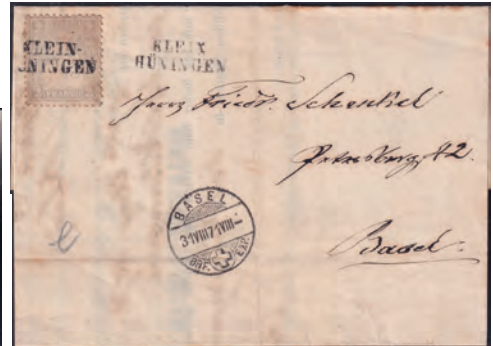 KLEIN-
NINGEN
KLEIN
HÜNINGEN
Herrn Friedr. Schenkel
Petersberg 42.
Basel.
BASEL
31 VIII 71 VIII–
BRF. EXP.